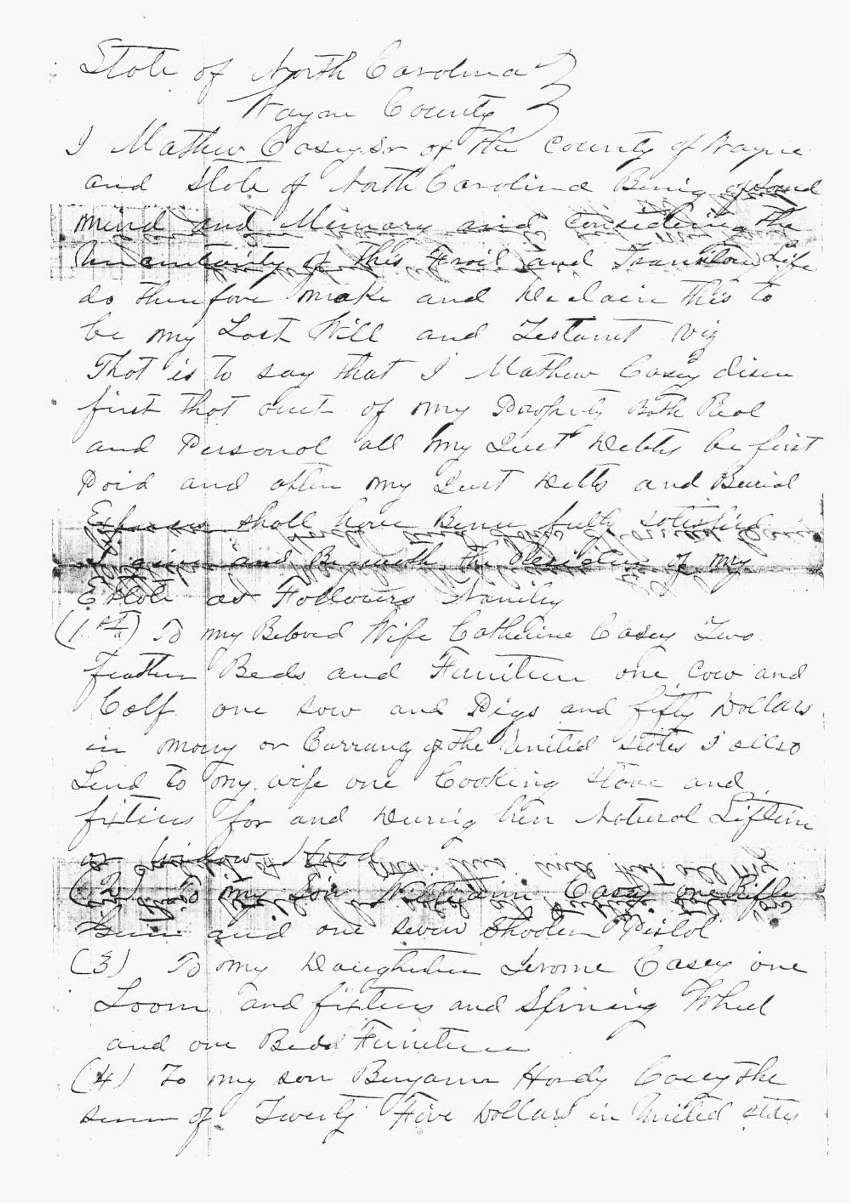 State of North Carolina
Wayne County
I Mathew Casey Sr of the County of Wayne
and State of North Carolina Being of Sound
mind and Memory and Considering the
uncertainty of this Frail and Transitory Life
do therefore make and Declair this to
be my Last Will and Testamt Viz
That is to say that I Mathew Casey
first that out of my Property Both Real
and Personal all my Just Debts be first
Paid and after my Just Debts and Burial
Expences shall have Been fully sotisfied
and Bequeath the of my
Estate as Follows Namley
(1st) To my Beloved Wife Catherine Casey Two
feather Beds and Furniture one Cow and
Calf one sow and Pigs and fifty Dollars
in mony or Currancy of the United States I allso
Lend to my wife one Cooking Stove and
fixtures for and During her Natural Liftime
or Widowhood
(2) To my Son William Casey one Rifle
Gun and one seven Shooter Pistol
(3) To my Daughter Casey one
Loom and fixtures and Spining Wheel
and one Bedd Furniture
(4) To my son Hardy Casey the
sum of Twenty Five Dollars in United states